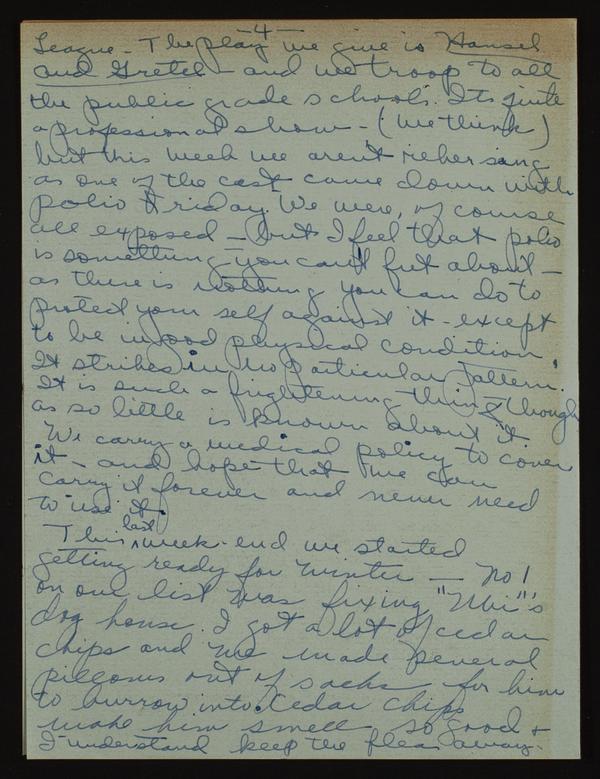 -4-
League - The play we give is Hansel
and Gretel - and we troop to all
the public grade schools. Its quite
a professional show - (we think)
but this week we aren't rehersing
as one of the cast came down with
polio Friday. We were, of course
all exposed - but I feel that polio
is something you can't fret about -
as there is nothing you can do to
protect your self against it - except
to be in good physical condition.
It strikes in no particular pattern.
It is such a frightening thing though
as so little is known about it.
We carry a medical policy to cover
it - and hope that we can
carry it forever and never need
to use it.
This last week-end we started
getting ready for winter - No 1
on our list was fixing "Mii"'s
dog house. I got a lot of cedar
chips and we made several
pillows out of sacks for him
to burrow into. Cedar chips
make him smell so good +
I understand keep the fleas away.